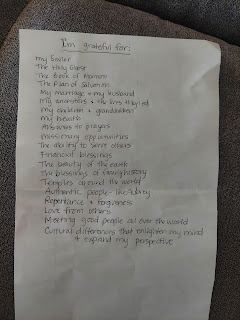 I'm grateful for:
my Savior
The Holy Ghost
The Book of Mormon
The Plan of Salvation
My marriage & my husband
My ancestors & the lives they led
my children & grandchildren
my health
Answers to prayers
missionary opportunities
The ability to serve others
Financial blessings
The beauty of the earth
The blessings of family history
Temples around the world
Authentic people - like Aubrey
Repentance & forgiveness
Love from others
Meeting good people all over the world
Cultural differences that enlighten my mind
& expand my perspective